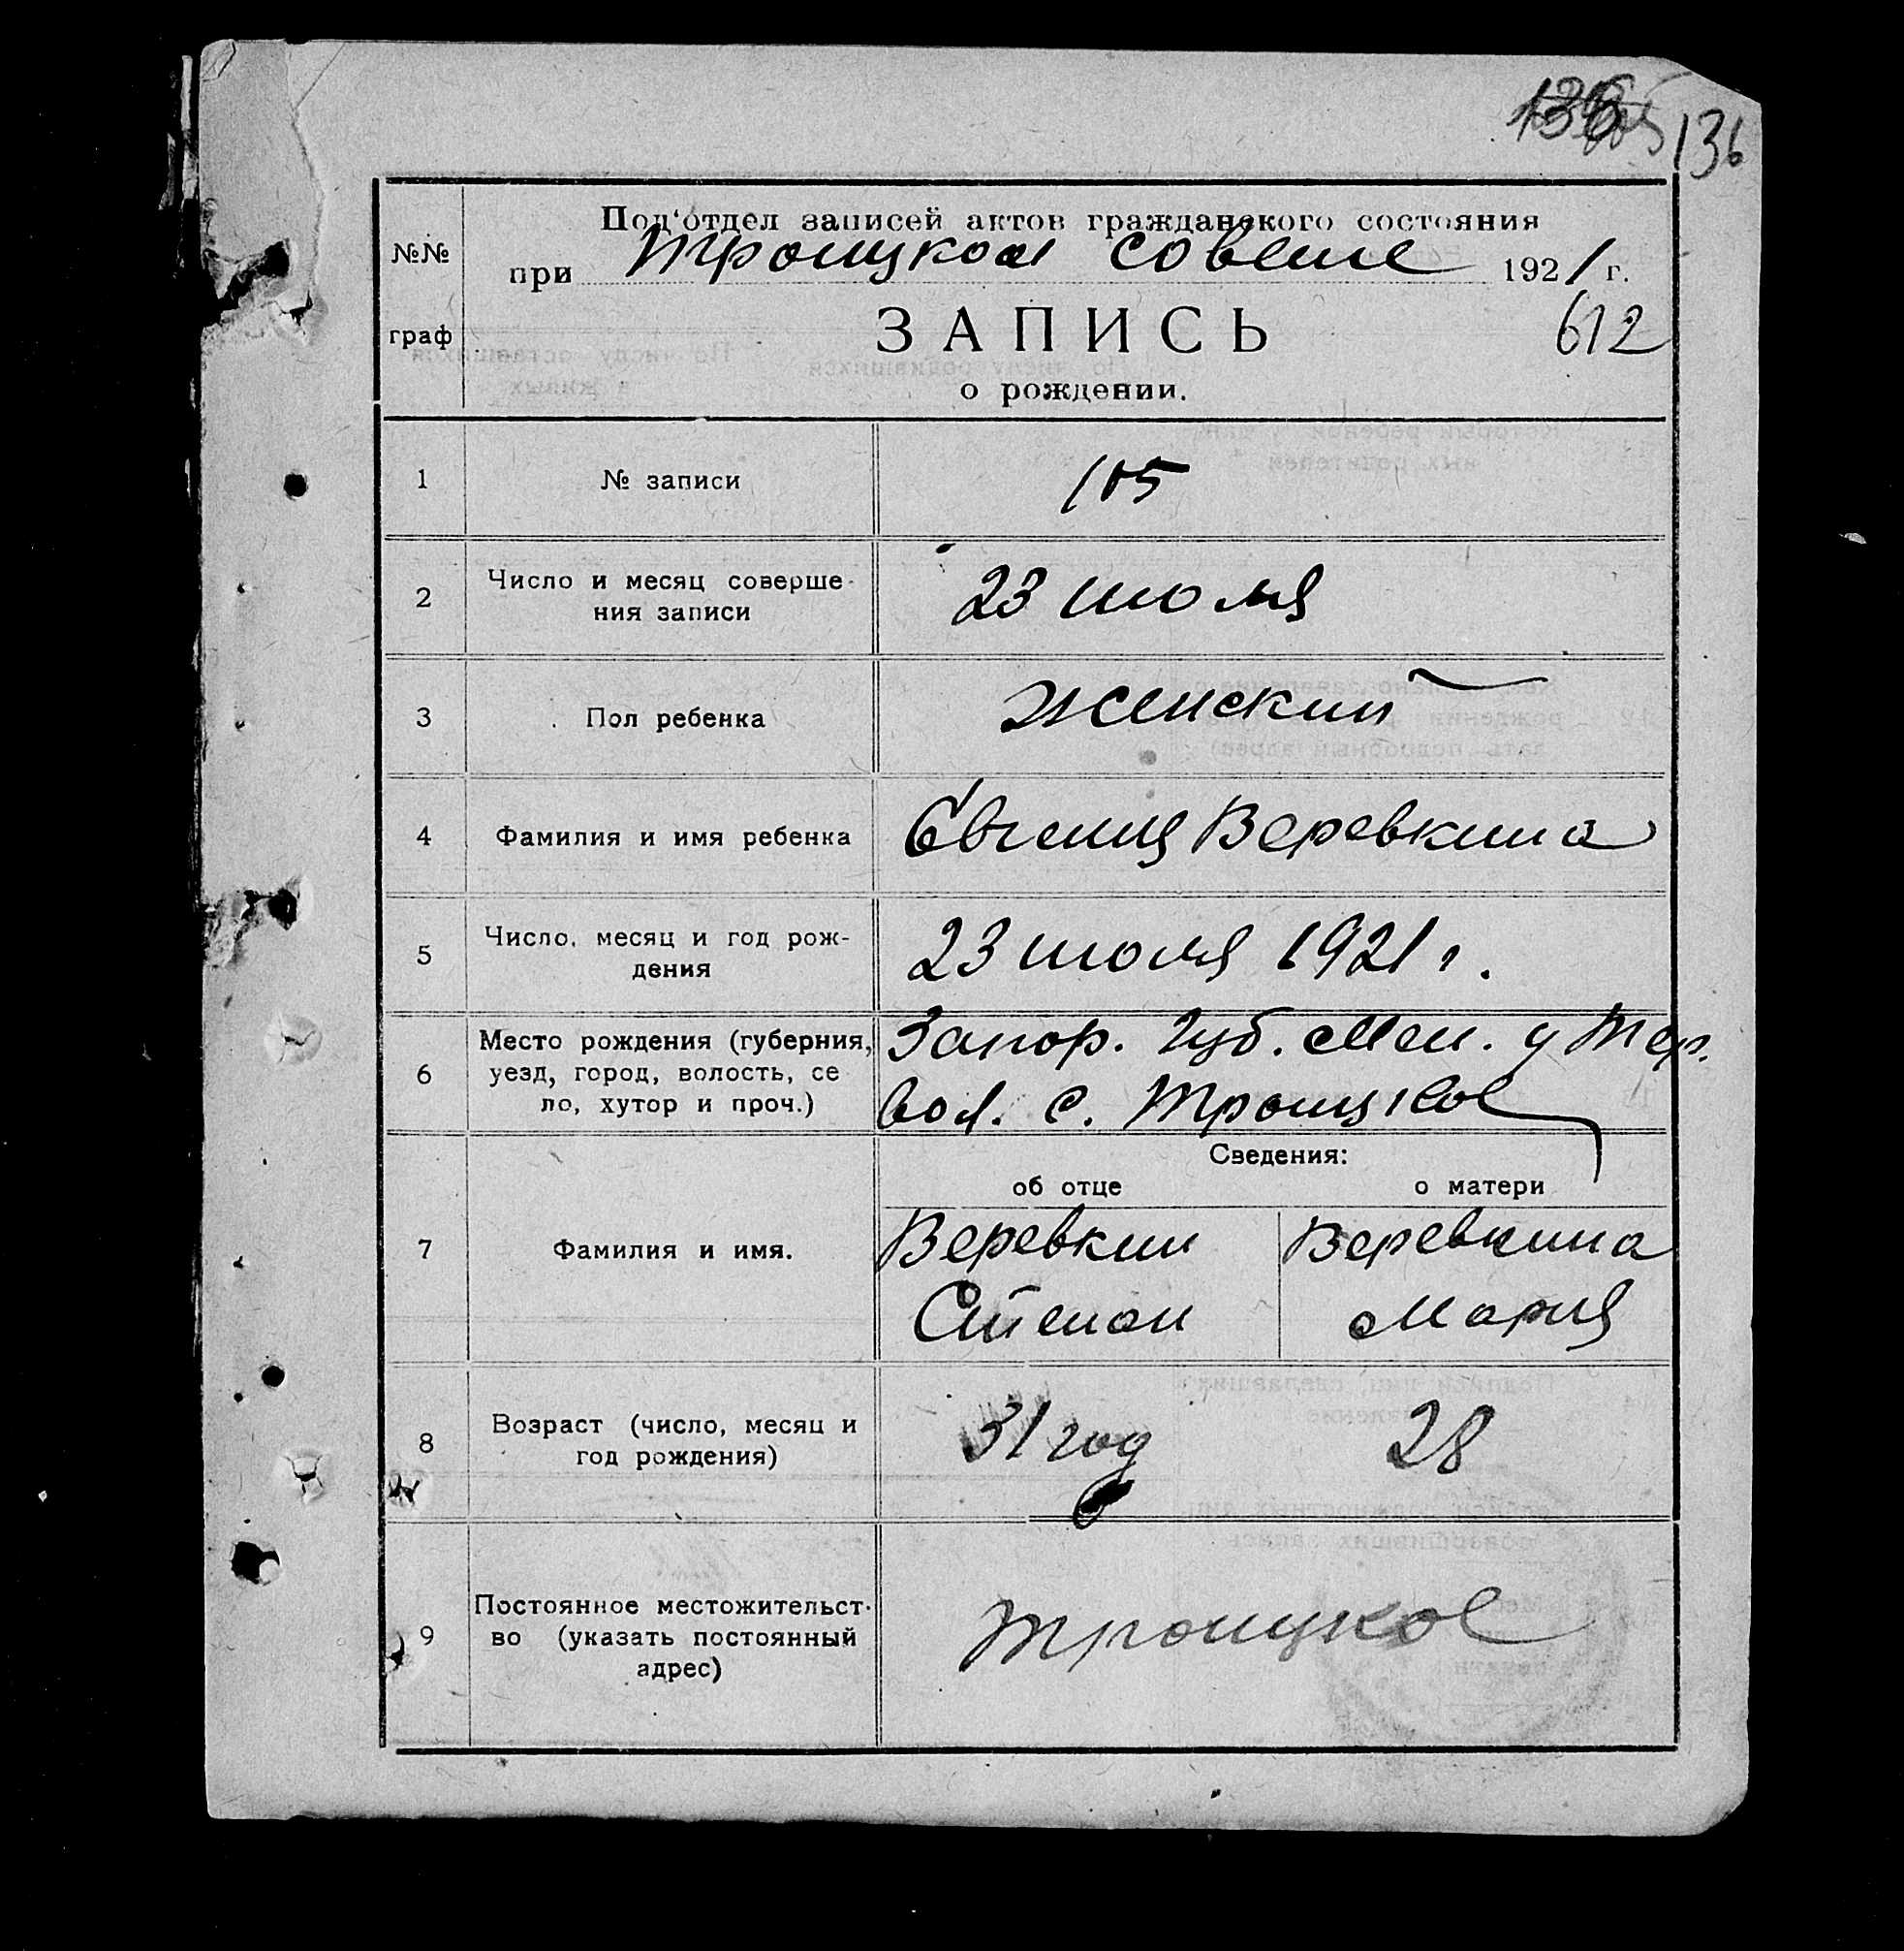 136
Под'отдел записей актов гражданского состояния
№№ граф
при Троицком совете 1921 г.
ЗАПИСЬ
612
о рождении.
1 № записи 105
2 Число и месяц соверше-
ния записи
23 июля
3 Пол ребенка Женский
4 Фамилия и имя ребенка Евгения Веревкина
5 Число, месяц и год рож-
дения
23 июля 1921 г.
6 Место рождения (губерния,
уезд, город, волость, се
ло, хутор и проч.)
Запор. Губ. Мел. у Тер.
вол. с. Троицкое
Сведения:
об отце о матери
7 Фамилия и имя.
Веревкин Веревкина
Степан Мария
8 Возраст (число, месяц и
год рождения)
31 год 28
9 Постоянное местожительст-
во (указать постоянный
адрес)
Троицкое